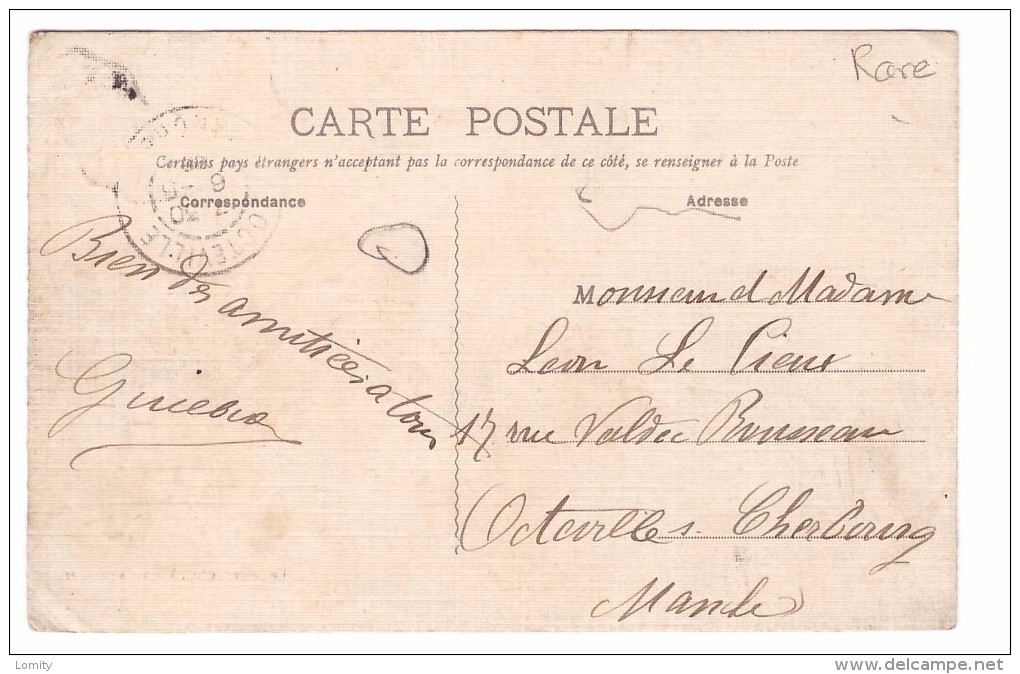 Rare
CARTE POSTALE
Certains pays étrangers n'acceptant pas la correspondance de ce côté, se renseigner à la Poste
Correspondance
Bien des amitiées a tous
Adresse
Monsieur et Madame
Leon Le Pieux
17 rue Valdec Rousseau
Octeville s. Cherbourg
Manche
Lomity
www.delcampe.net